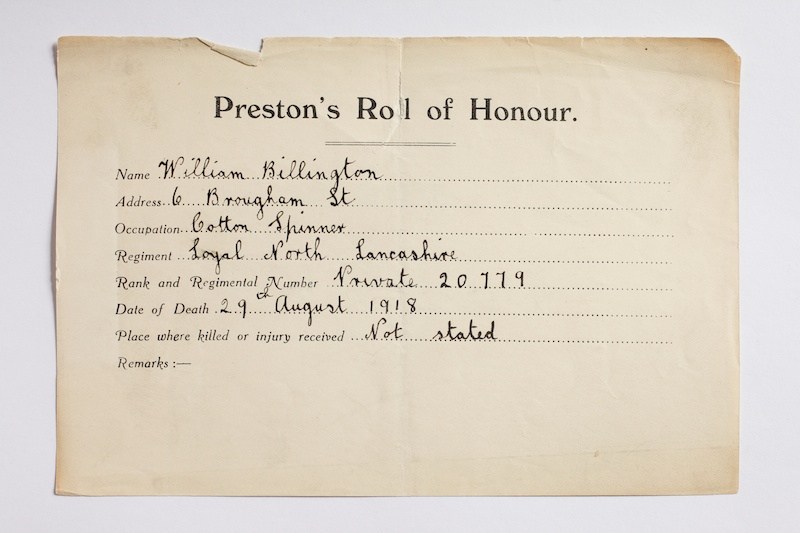 Preston's Roll of Honour.
Name William Billington
Address 6 Brougham St
Occupation Cotton Spinner
Regiment Loyal North Lancashire
Rank and Regimental Number Private 20779
Date of Death 29th August 1918
Place where killed or injury received Not stated
Remarks :—